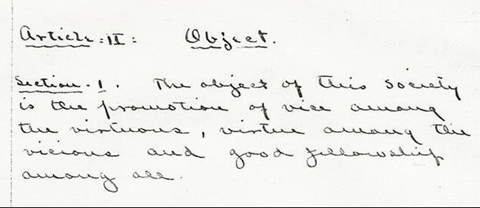 Article: II: Object.
Section. 1. The object of this society
is the promotion of vice among
the virtuous, virtue among the
vicious and good fellowship
among all.